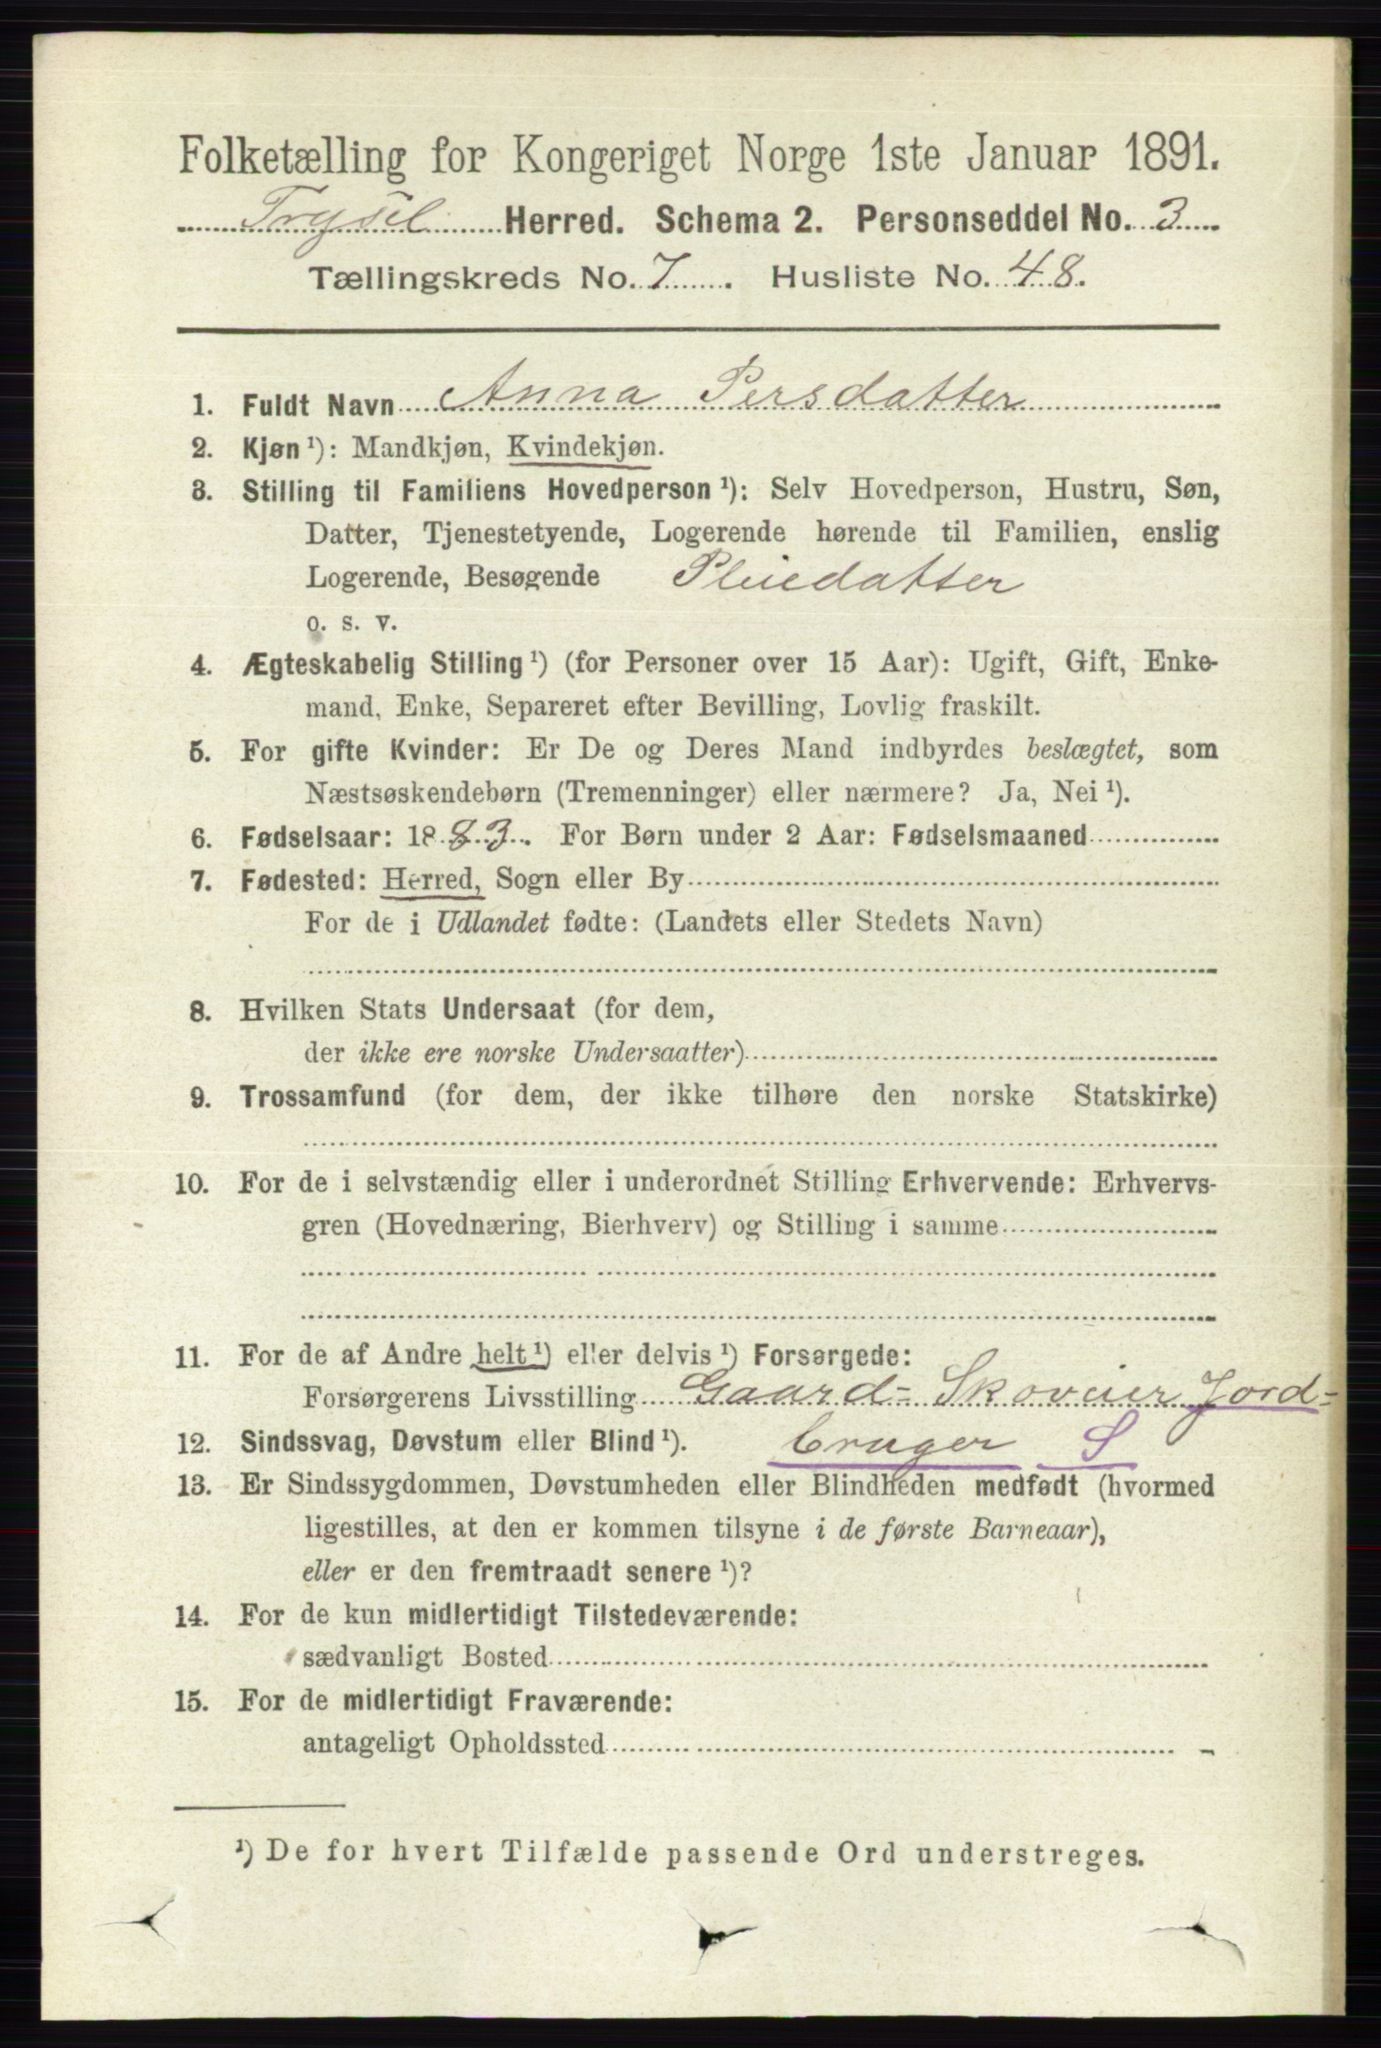 Folketælling for Kongeriget Norge 1ste Januar 1891.
Trysil Herred. Schema 2. Personseddel No. 3
Tællingskreds No. 7. Husliste No. 48.
1. Fuldt Navn Anna Persdatter
2. Kjøn ¹): Mandkjøn, Kvindekjøn.
3. Stilling til Familiens Hovedperson ¹): Selv Hovedperson, Hustru, Søn,
Datter, Tjenestetyende, Logerende hørende til Familien, enslig
Logerende, Besøgende Pleiedatter
o. s. v.
4. Ægteskabelig Stilling ¹) (for Personer over 15 Aar): Ugift, Gift, Enke-
mand, Enke, Separeret efter Bevilling, Lovlig fraskilt.
5. For gifte Kvinder: Er De og Deres Mand indbyrdes beslægtet, som
Næstsøskendebørn (Tremenninger) eller nærmere? Ja, Nei ¹).
6. Fødselsaar: 1883. For Børn under 2 Aar: Fødselsmaaned
7. Fødested: Herred, Sogn eller By
For de i Udlandet fødte: (Landets eller Stedets Navn)
8. Hvilken Stats Undersaat (for dem,
der ikke ere norske Undersaatter)
9. Trossamfund (for dem, der ikke tilhøre den norske Statskirke)
10. For de i selvstændig eller i underordnet Stilling Erhvervende: Erhvervs-
gren (Hovednæring, Bierhverv) og Stilling i samme
11. For de af Andre helt ¹) eller delvis ¹) Forsørgede:
Forsørgerens Livsstilling Gaard= Skoveier Jord=
12. Sindssvag, Døvstum eller Blind ¹). bruger S
13. Er Sindssygdommen, Døvstumheden eller Blindheden medfødt (hvormed
ligestilles, at den er kommen tilsyne i de første Barneaar),
eller er den fremtraadt senere ¹)?
14. For de kun midlertidigt Tilstedeværende:
sædvanligt Bosted
15. For de midlertidigt Fraværende:
antageligt Opholdssted
¹) De for hvert Tilfælde passende Ord understreges.